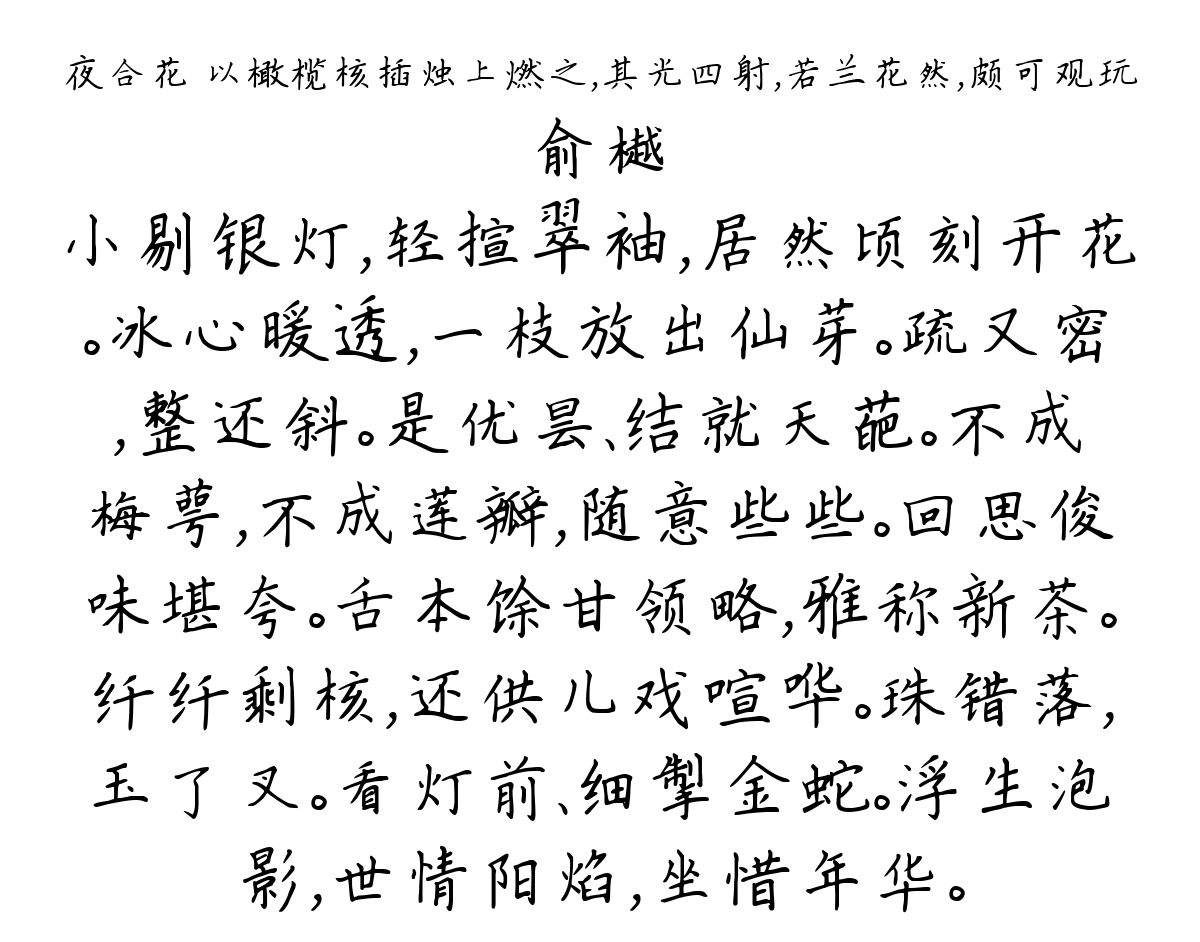 夜合花 以橄榄核插烛上燃之,其光四射,若兰花然,颇可观玩
俞樾
小剔银灯,轻揎翠袖,居然顷刻开花
。冰心暖透,一枝放出仙芽。疏又密
,整还斜。是优昙、结就天葩。不成
梅萼,不成莲瓣,随意些些。回思俊
味堪夸。舌本馀甘领略,雅称新茶。
纤纤剩核,还供儿戏喧哗。珠错落,
玉了叉。看灯前、细掣金蛇。浮生泡
影,世情阳焰,坐惜年华。